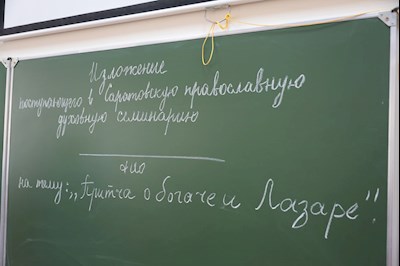 Изложение
поступающего в Саратовскую православную
духовную семинарию
фио
на тему: „Притча о богаче и Лазаре".